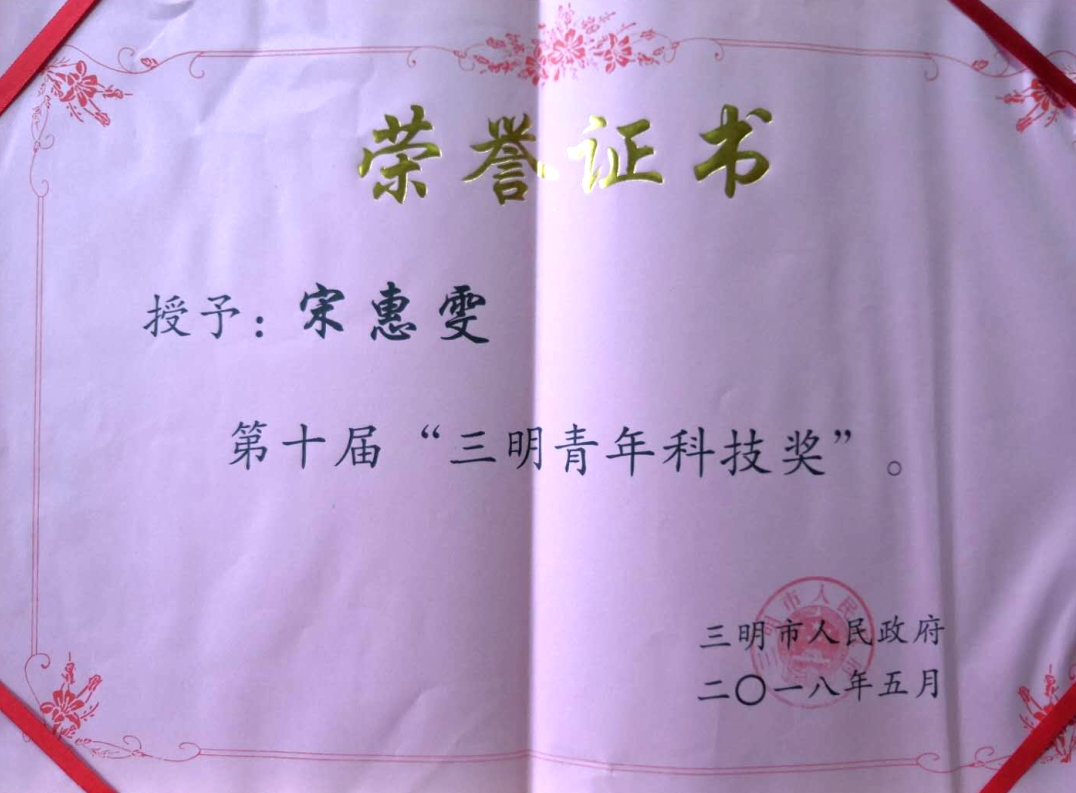 荣誉证书
授予：宋惠雯
第十届“三明青年科技奖”。
三明市人民政府
二〇一八年五月